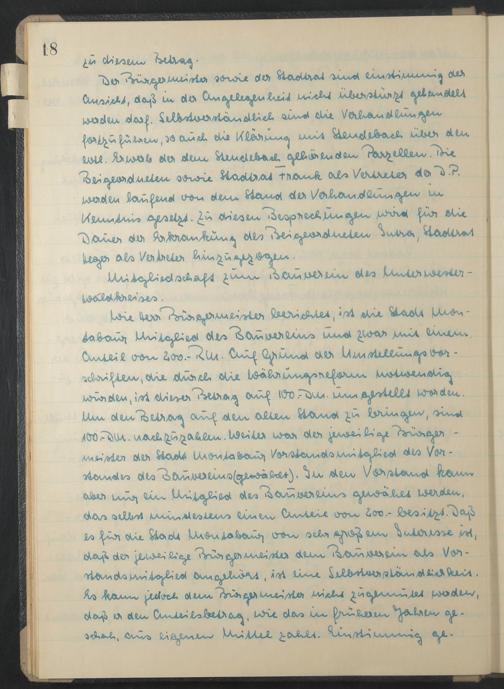 18
zu diesem Betrag.
Der Bürgermeister sowie der Stadtrat sind einstimmig der
Ansicht, daß in der Angelegenheit nicht überstürzt gehandelt
werden darf. Selbstverständlich sind die Verhandlungen
fortzuführen, so auch die Klärung mit Stendebach über den
evtl. Erwerb der dem Stendebach gehörenden Parzellen. Die
Beigeordneten sowie Stadtrat Frank als Vertreter der D.P.
werden laufend von dem Stand der Verhandlungen in
Kenntnis gesetzt. Zu diesen Besprechungen wird für die
Dauer der Erkrankung des Beigeordneten Stadtrat
als Vertreter hinzugezogen.
Mitgliedschaft zum Bauverein des Unterwester-
waldkreises.
Wie Herr Bürgermeister berichtet, ist die Stadt Mon-
tabaur Mitglied des Bauvereins und zwar mit einem
Anteil von 200.- RM. Auf Grund der Umstellungsvor-
schriften, die durch die Währungsreform notwendig
wurden, ist dieser Betrag auf 100.- DM. umgestellt worden.
Um den Betrag auf den alten Stand zu bringen, sind
100.- DM. nachzuzahlen. Weiter war der jeweilige Bürger-
meister der Stadt Montabaur Vorstandsmitglied des Vor-
standes des Bauvereins (gewählt). In den Vorstand kann
aber nur ein Mitglied des Bauvereins gewählt werden,
das selbst mindestens einen Anteil von 200.- besitzt. Daß
es für die Stadt Montabaur von sehr großem Interesse ist,
daß der jeweilige Bürgermeister dem Bauverein als Vor-
standsmitglied angehört, ist eine Selbstverständlichkeit.
Es kann jedoch dem Bürgermeister nicht zugemutet werden,
daß er den Anteilsbetrag, wie das in früheren Jahren ge-
schah, aus eigenen Mittel zahlt. Einstimmig ge-